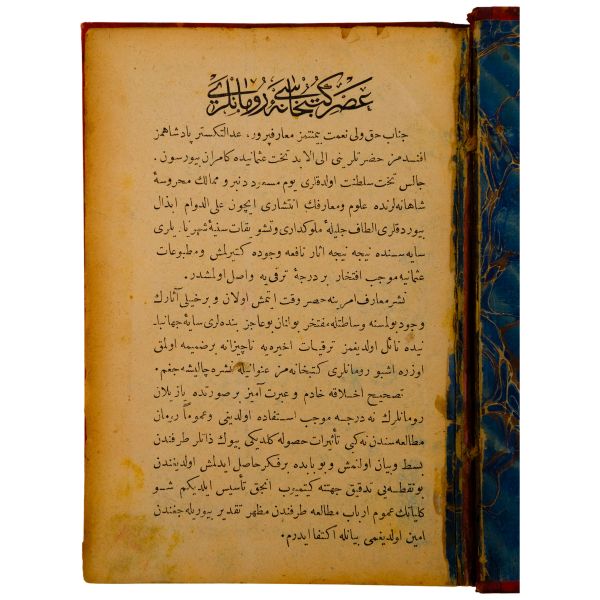 عصر کتبخانه‌سی رومانلری
جناب حق ولی نعمت بیمنتمز معارفپرور، عدالتکستر پادشاهمز
افندمز حضرتلرینی الی الابد تخت عثمانیده کامران بیورسون.
جالس تخت سلطنت اولدقلری یوم مسعوددنبرو ممالك محروسۀ
شاهانه‌لرنده علوم و معارفك انتشاری ایچون علی الدوام ابذال
بیوردقلری الطاف جلیلۀ ملوکداری و تشویقات سنیۀ شهریاریلری
سایه سنده نیجه نیجه آثار نافعه وجوده کتیرلمش و مطبوعات
عثمانیه موجب افتخار بر درجۀ ترقی یه واصل اولمشدر.
نشر معارف امرینه حصر وقت ایتمش اولان و بر خیلی آثارك
وجود بولمسنه وساطتله مفتخر بولنان بو عاجز بنده‌لری سایۀ جهانبا-
نیده نائل اولدیغمز ترقیات اخیره یه ناچیزانه بر ضمیمه اولمق
اوزره اشبو رومانلری کتبخانه مز عنوانیله نشره چالیشه جغم.
تصحیح اخلاقه خادم و عبرت آمیز بر صورتده یازیلان
رومانلرك نه درجه موجب استفاده اولدیغی و عموماً رومان
مطالعه سندن نه کبی تأثیرات حصوله کلدیکی بیوك ذاتلر طرفندن
بسط و بیان اولنمش و بو بابده بر فکر حاصل ایدلمش اولدیغندن
بو نقطه یی تدقیق جهتنه کیتمیوب انجق تأسیس ایلدیکم شو
کلیاتك عموم ارباب مطالعه طرفندن مظهر تقدیر بیوریله جغندن
امین اولدیغمی بیانله اکتفا ایدرم.